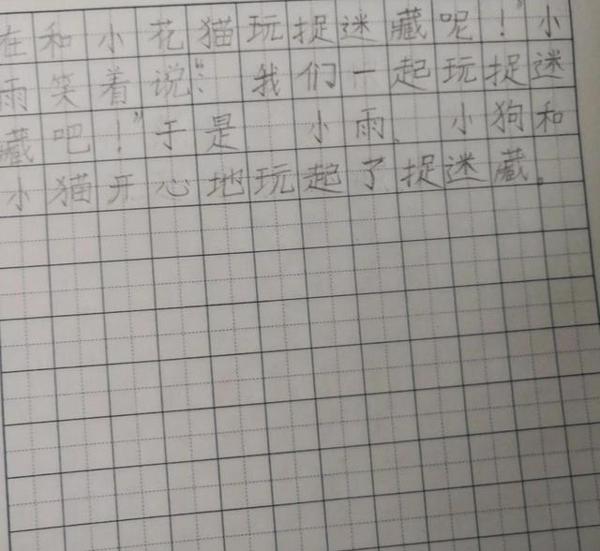 在和小花猫玩捉迷藏呢！”小
雨笑着说“：我们一起玩捉迷
藏吧！”于是 小雨、小狗和
小猫开心地玩起了捉迷藏。